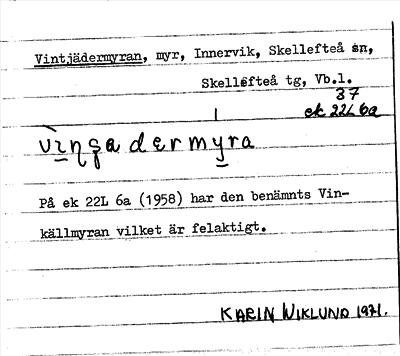 Vintjädermyran, myr, Innervik, Skellefteå sn,
Skellefteå tg, Vb.l.
37
ek 22L 6a
På ek 22L 6a (1958) har den benämnts Vin-
källmyran vilket är felaktigt.
KARIN WIKLUND 1971.